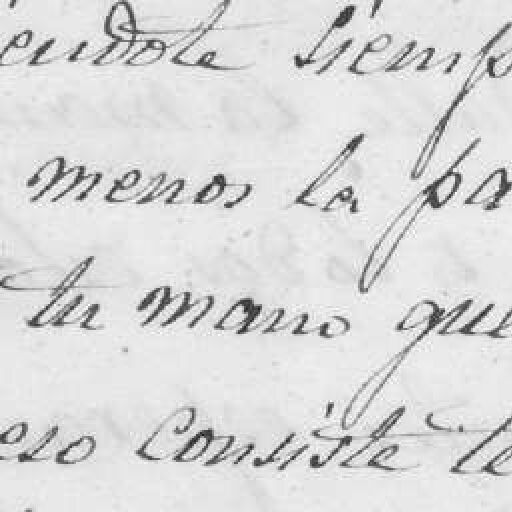 endote siemp
menos la pa
tu mano que
eso consiste te